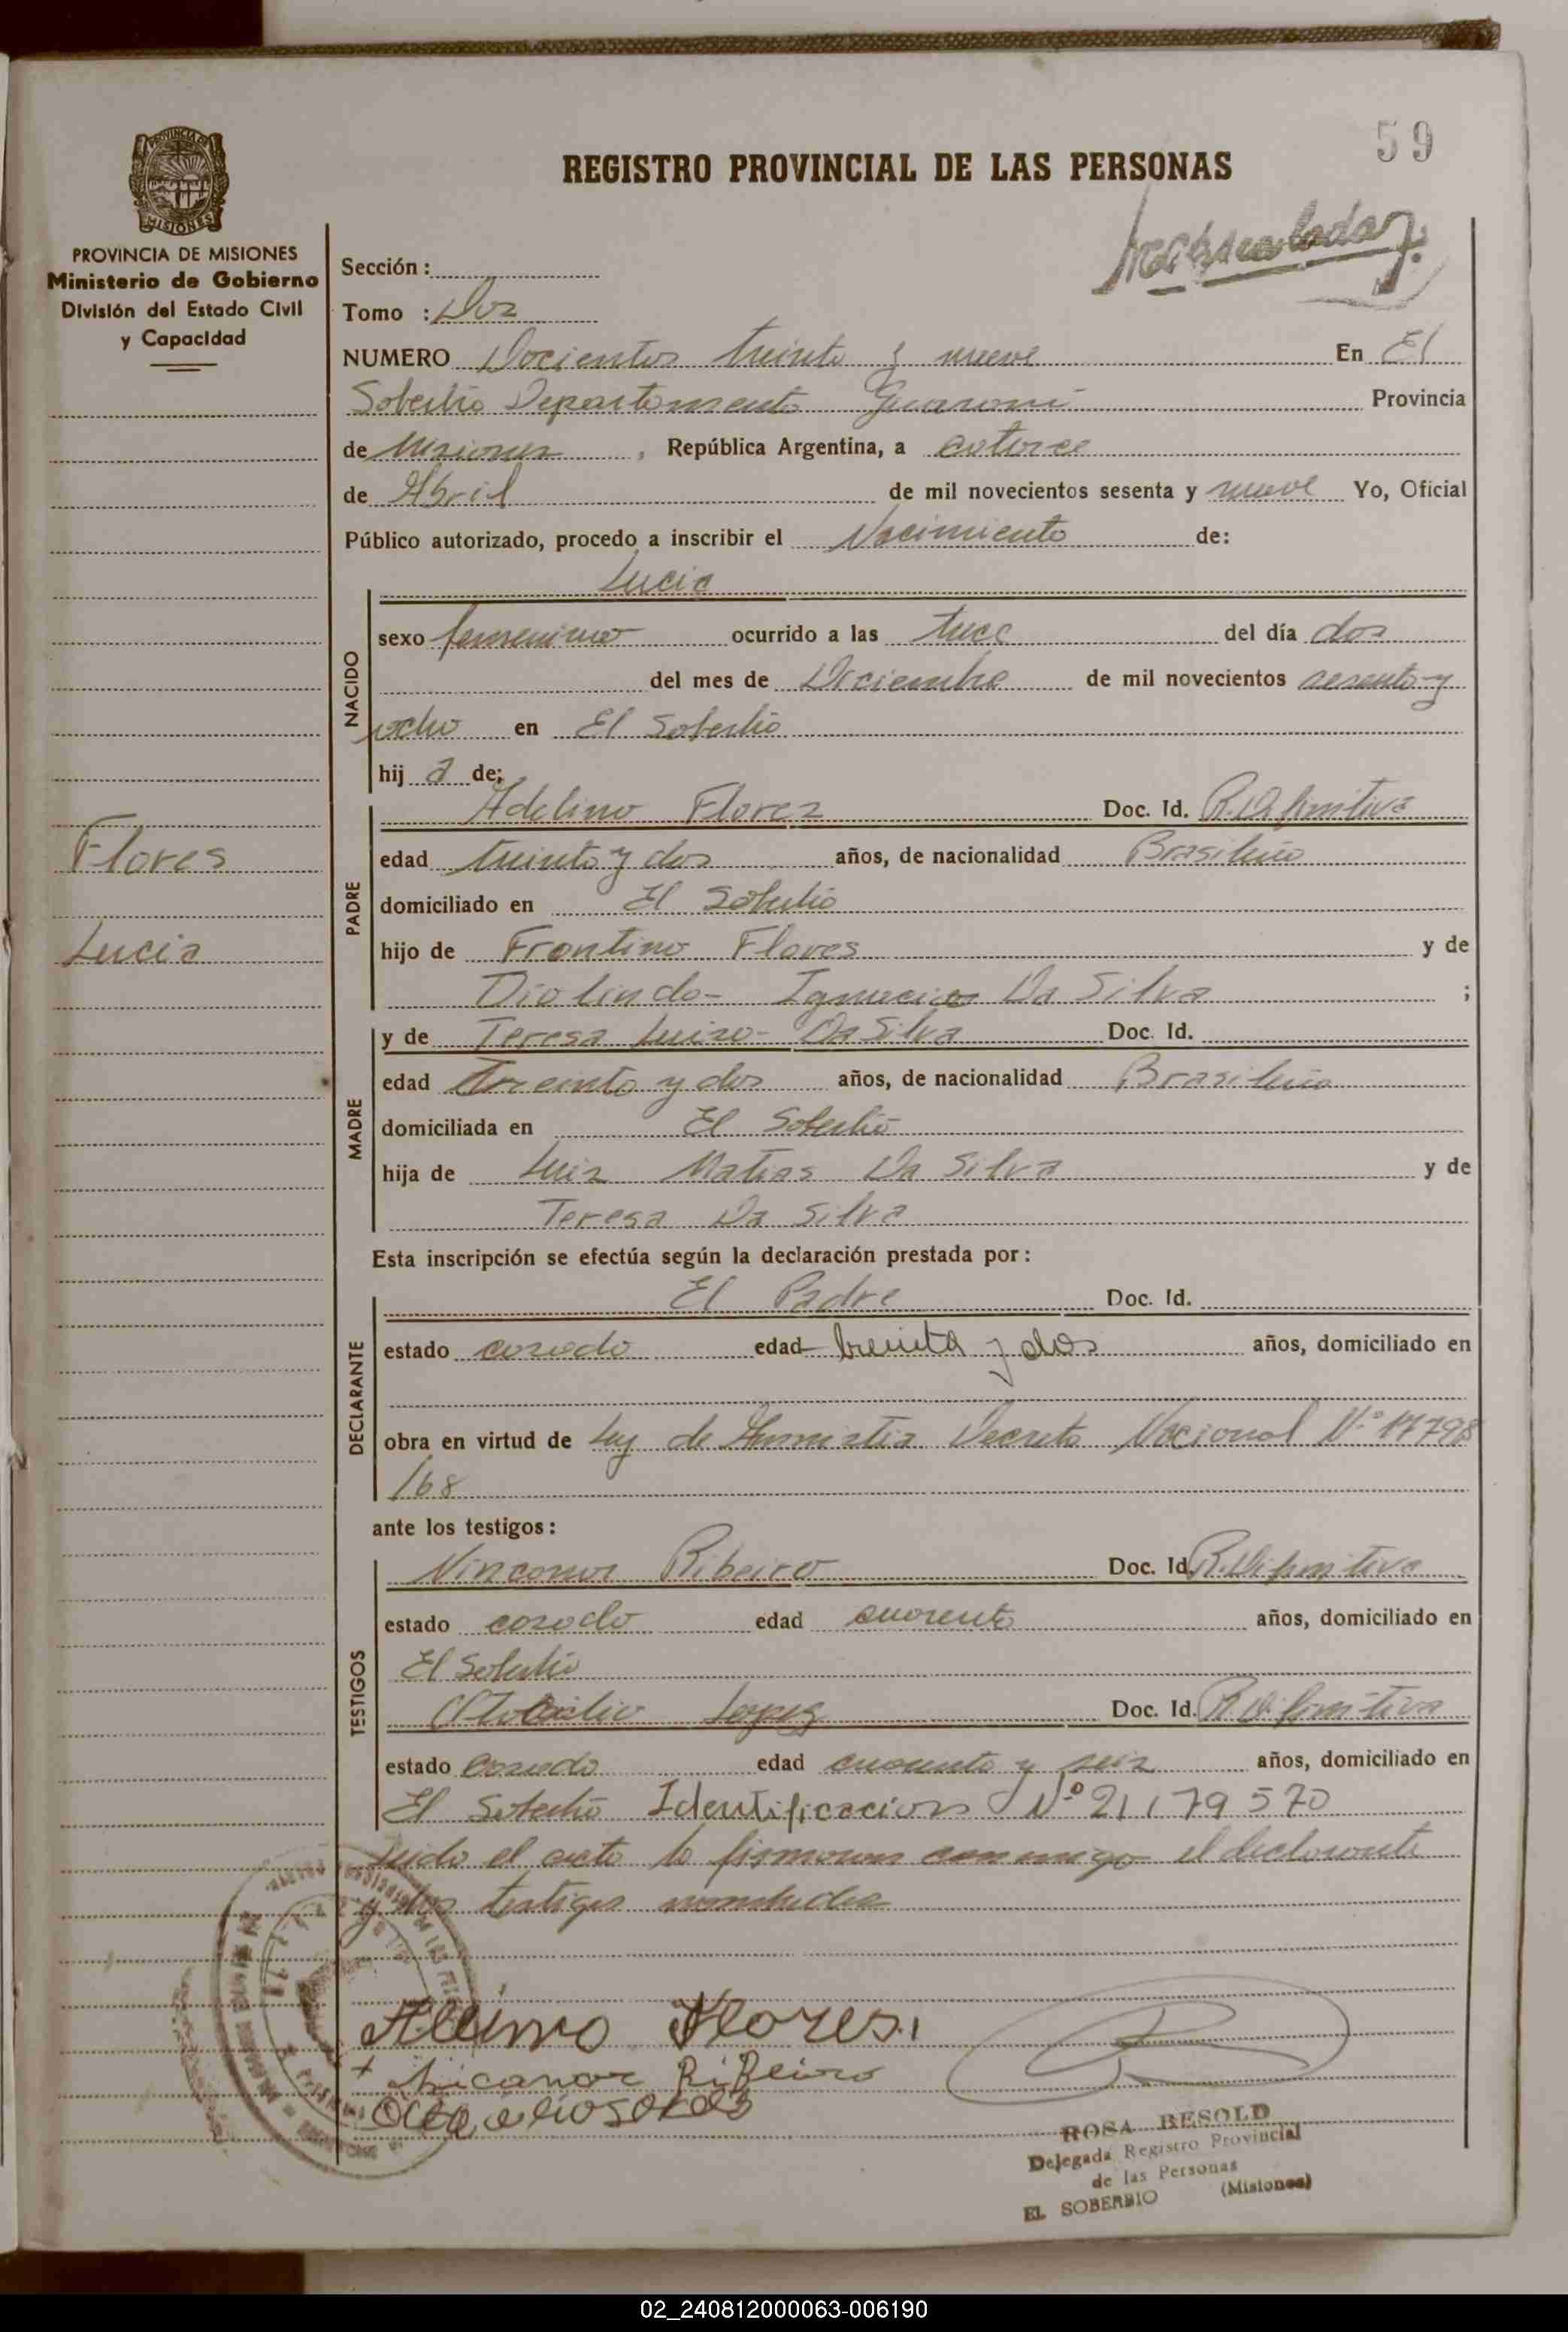 59
REGISTRO PROVINCIAL DE LAS PERSONAS
PROVINCIA DE
MISIONES
PROVINCIA DE MISIONES
Ministerio de Gobierno
División del Estado Civil
y Capacidad
Flores
Lucia
Sección :
Tomo : Dos
NUMERO Docientos treinta y nueve En El
Soberbio Departamento Guarani Provincia
de Misiones, República Argentina, a catorce
de Abril de mil novecientos sesenta y nueve Yo, Oficial
Público autorizado, procedo a inscribir el Nacimiento de:
Lucia
NACIDO
sexo femenino ocurrido a las trece del día dos
del mes de Diciembre de mil novecientos sesenta y
ocho en El Soberbio
hij a de:
PADRE
Adelino Flores Doc. Id. R. Difinitiva
edad treinta y dos años, de nacionalidad Brasileño
domiciliado en El Soberbio
hijo de Frontino Flores y de
Diolinda Da Silva ;
MADRE
y de Teresa Luiza Da Silva Doc. Id.
edad treinta y dos años, de nacionalidad Brasileña
domiciliada en El Soberbio
hija de Luiz Matias Da Silva y de
Teresa Da Silva
Esta inscripción se efectúa según la declaración prestada por :
DECLARANTE
El Padre Doc. Id.
estado casado edad treinta y dos años, domiciliado en
obra en virtud de Ley de Amnistia Decreto Nacional N.º 17798
/68
ante los testigos :
TESTIGOS
Ribeiro Doc. Id. R. Difinitiva
estado casado edad cuarenta años, domiciliado en
El Soberbio
Lopez Doc. Id. R. Difinitiva
estado casado edad cuarenta y seis años, domiciliado en
El Soberbio Identificacion Nº 21,179570
Leido el acta la firmaron conmigo el declarante
y los testigos nombrados
Flores
Nicanor Ribeiro
ROSA RESOLD
Delegada Registro Provincial
de las Personas
EL SOBERBIO (Misiones)
02_240812000063-006190